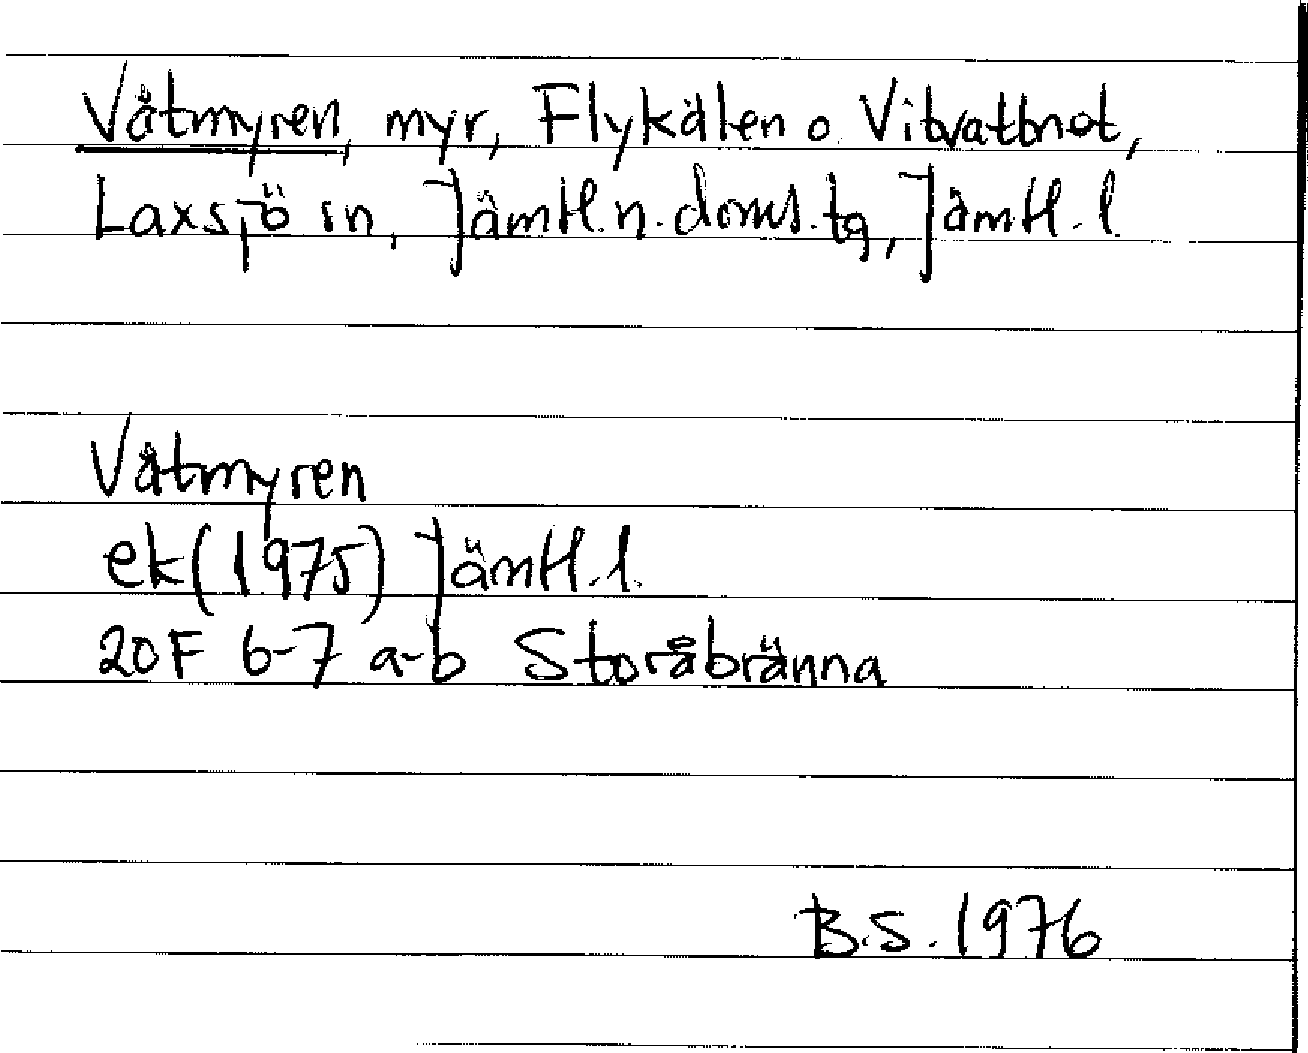 Våtmyren, myr, Flykälen o. Vitvattnet,
Laxsjö sn, Jämtl.n.doms.tg, Jämtl.l
Våtmyren
ek(1975) Jämtl.l.
20F 6-7 a-b Storåbränna
B.S. 1976